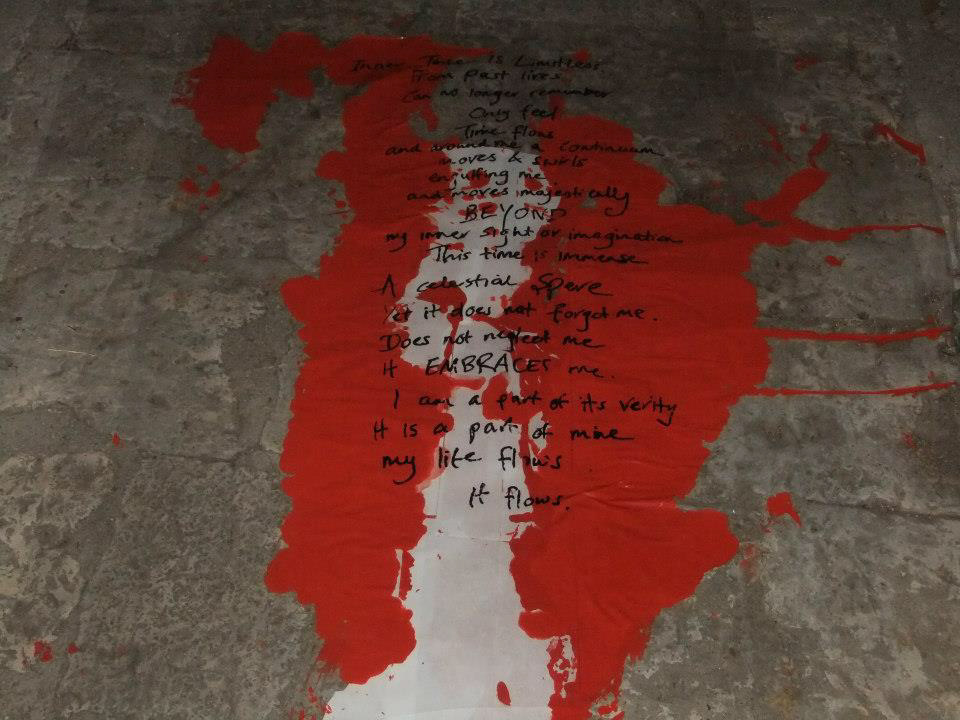 Inner Time is Limitless
From past lives
Can no longer remember
Only feel
Time flows
and around me a continuum
moves & swirls
engulfing me
and moves majestically
BEYOND
my inner sight or imagination
This time is immense
A celestial Spere
Yet it does not forget me.
Does not neglect me
It EMBRACES me.
I am a part of its verity
It is a part of mine
my life flows
It flows.